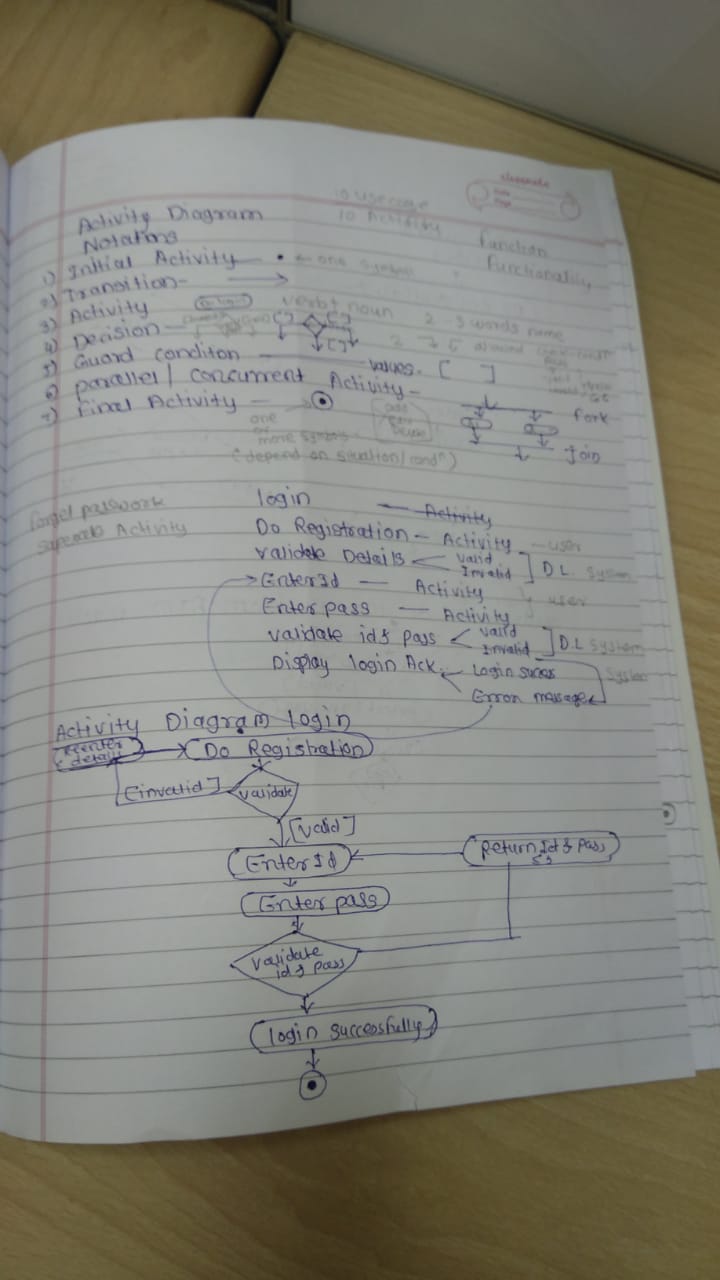 classmate
Date
Page
10 usecase
10 Activity
Function
Functionality
Activity Diagram
Notations
1) Initial Activity - • ← one symbol
2) Transition- →
3) Activity verb+noun 2 - 3 words name
4) Decision - [ ] [ ] [ ]
5) Guard conditon - values. [ ]
6) parallel / concurrent Activity -
7) Final Activity -
Fork
Join
one
or
more symbols
(depend on situation/condn)
Forget password
seperate Activity
login - Activity
Do Registration - Activity - user
validate Details valid Invalid ] D L System
Enter Id - Activity
Enter pass - Activity user
validate id & pass valid Invalid ] D.L System
Display login Ack. Login succes System
Error message
Activity Diagram login
Reenter details
Do Registration
[invalid]
validate
[valid]
Enter Id
Return Id & pass
Enter pass
validate
id & pass
login successfully